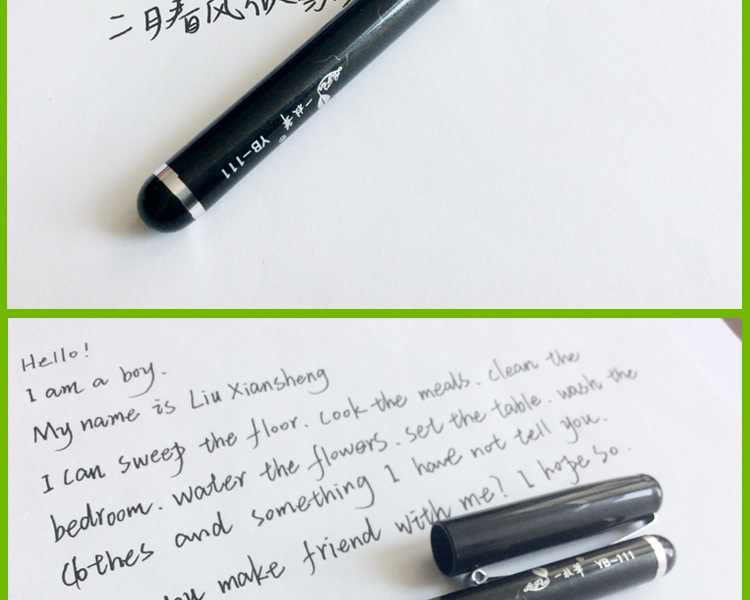 二月春风似剪
一枝笔 YB-111
Hello!
I am a boy.
My name is Liu Xiansheng
I can sweep the floor. cook the meals. clean the
bedroom. water the flowers. set the table. wash the
clothes and something I have not tell you.
you make friend with me? I hope so.
一枝笔 YB-111